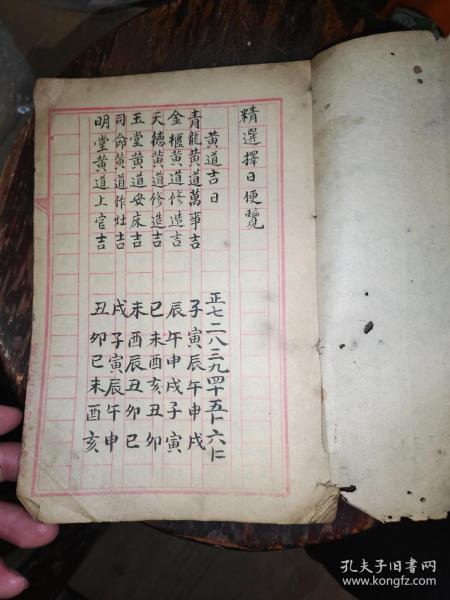 精選擇日便覽
黃道吉日 正七二八三九四十五十一六十二
青龍黃道萬事吉 子寅辰午申戌
金櫃黃道修造吉 辰午申戌子寅
天德黃道修造吉 巳未酉亥丑卯
玉堂黃道安床吉 未酉辰丑卯巳
司命黃道作灶吉 戌子寅辰午申
明堂黃道上官吉 丑卯巳未酉亥
孔夫子旧书网
www.kongfz.com